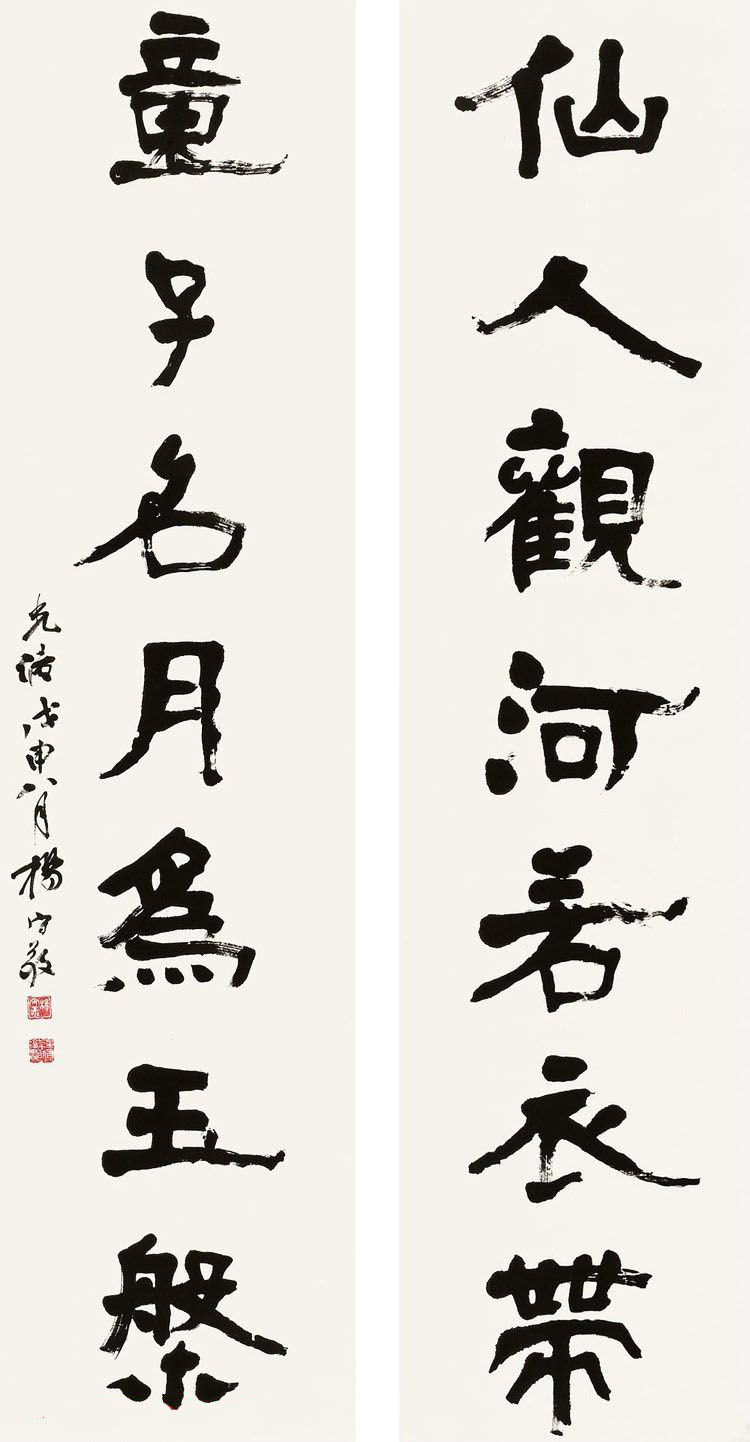 仙人觀河若衣帶
童子名月為玉槃
光緒戊申八月楊守敬